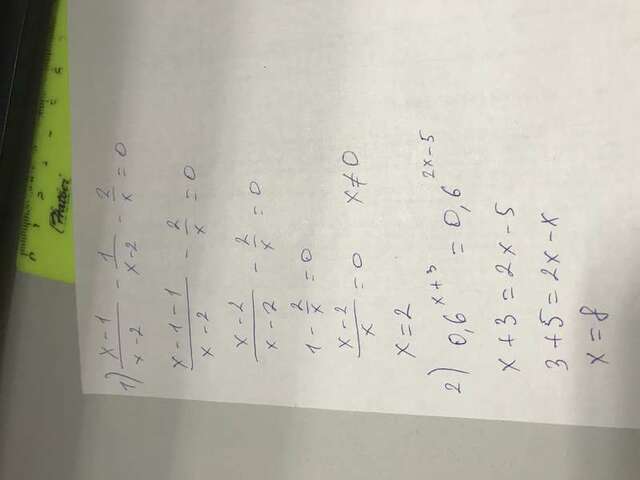 Hatber
1) \frac{x-1}{x-2} - \frac{1}{x-2} - \frac{2}{x} = 0
\frac{x-1-1}{x-2} - \frac{2}{x} = 0
\frac{x-2}{x-2} - \frac{2}{x} = 0
1 - \frac{2}{x} = 0
\frac{x-2}{x} = 0 x ≠ 0
x = 2
2) 0,6^{x+3} = 0,6^{2x-5}
x + 3 = 2x - 5
3 + 5 = 2x - x
x = 8